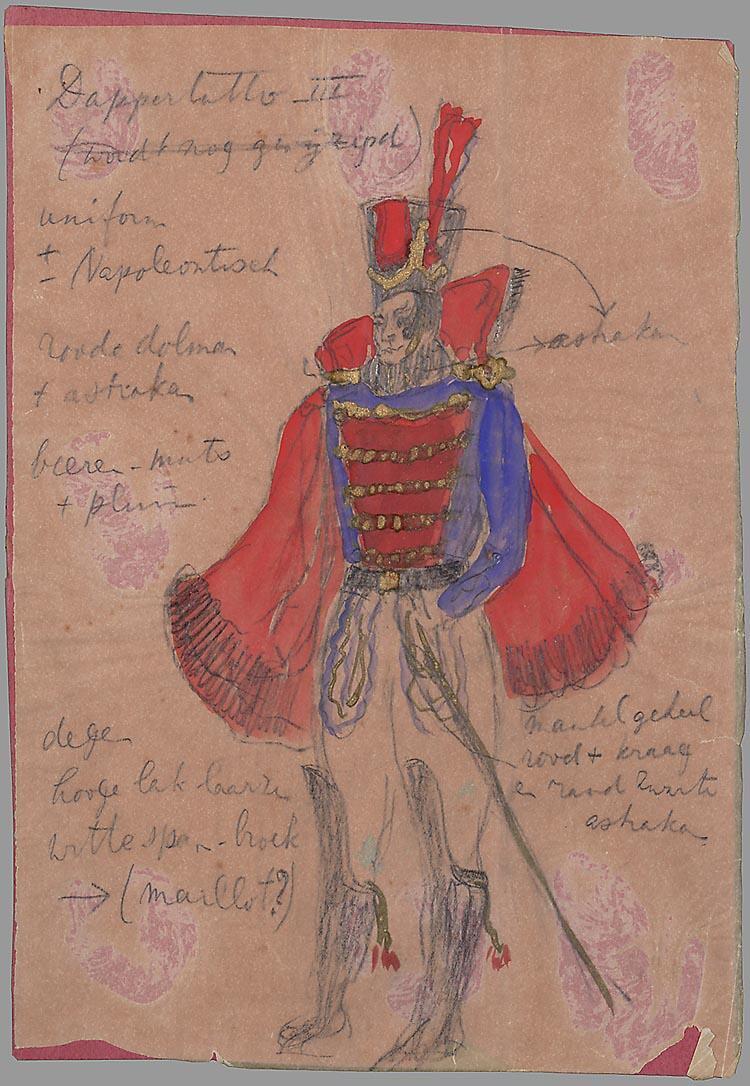 Dappertutto III
(wordt nog gewijzigd)
uniform
± Napoleontisch
roode dolman
+ astrakan
→ astrakan
beeren-muts
+ pluim.
degen
hooge lak-laarzen
witte span-broek
→ (maillot?)
mantel geheel
rood + kraag
en rand zwarte
astrakan